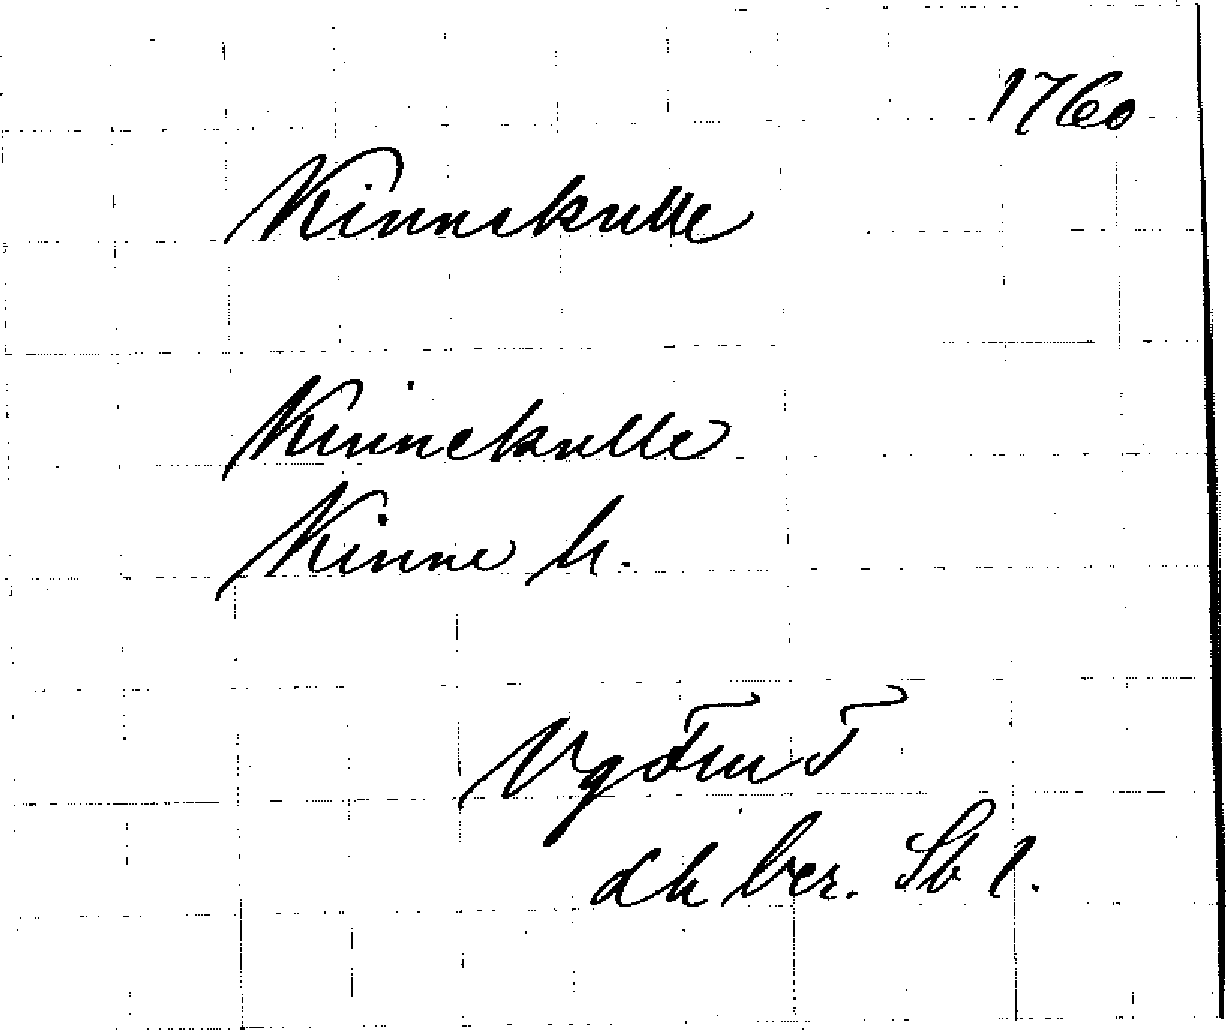 1760
Kinnekulle
Kinnekulle
Kinne h.
Vg
ber. Sb 1.